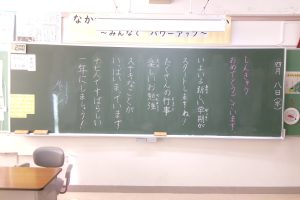 なか
～みんなで パワーアップ～
四月八日(水)
しんきゅう
おめでとうございます
いよいよ新しい学期が
スタートしますね!
たくさんの行事
楽しいお勉強
ステキなことが
いっぱいまっています
一年にしましょう!